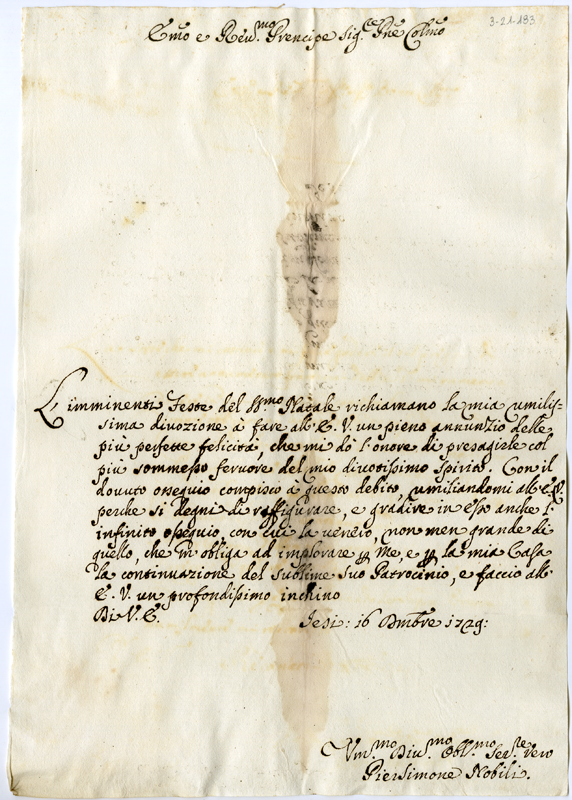 3-21-183
Emo e Reu.mo Prencipe Sig.re Pne Colmo
L'imminenti Feste del SS.mo Natale richiamano la mia umilis-
sima diuozione à fare all'E. V. un pieno annunzio delle
più perfette felicità, che mi dò l'onore di presagirle col
più sommesso feruore del mio diuotissimo Spirito. Con il
douuto ossequio compisco à questo debito, umiliandomi all'E. V.
perche si degni di raffigurare, e gradire in esso anche l'
infinito ossequio, con cui la uenero, non men grande di
quello, che m'obliga ad implorare p me, e p la mia Casa
la continuazione del sublime suo Patrocinio, e faccio all'
E. V. un profondissimo inchino
Di V. E.
Jesi: 16 Dmbre 1729:
Vm.mo Diu.mo Obl.mo Ser.re vero
PierSimone Nobili.